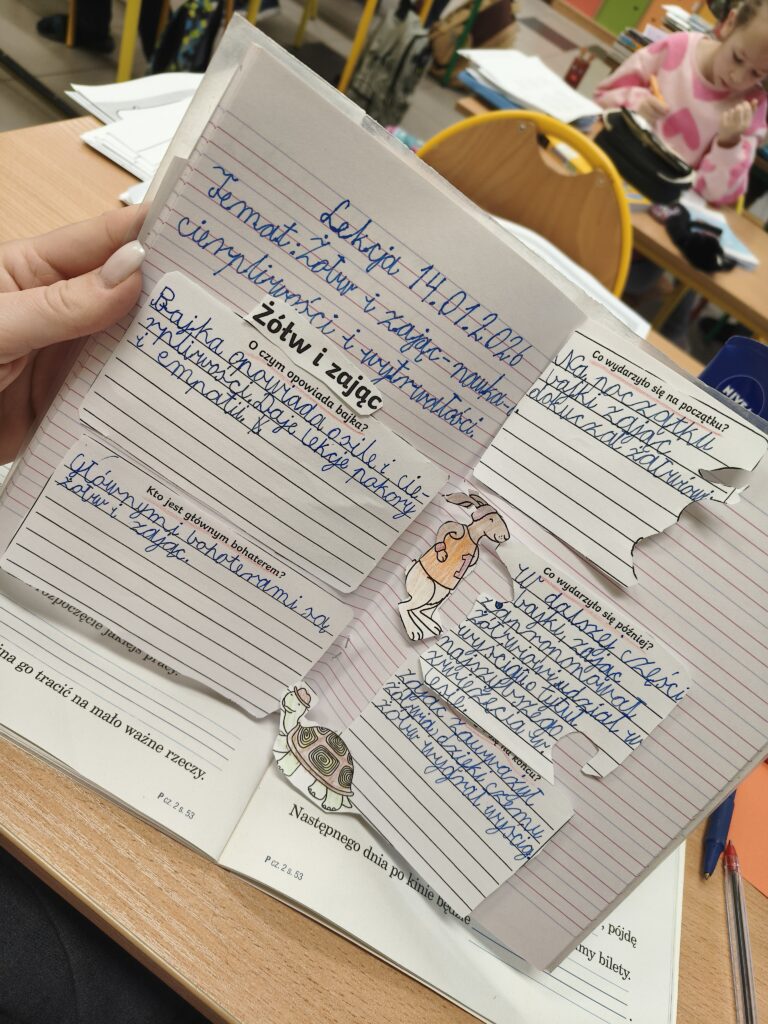 Lekcja 14.01.2026
Temat: Żółw i zając - nauka
cierpliwości i wytrwałości.
Żółw i zając
O czym opowiada bajka?
Bajka opowiada o sile i cie-
rpliwości. Daje lekcję pokory
i empatii.
Kto jest głównym bohaterem?
Głównymi bohaterami są
żółw i zając.
Co wydarzyło się na początku?
Na początku
bajki zając
dokuczał żółwiowi
Co wydarzyło się później?
W dalszej części
bajki zając
zaproponował
żółwiowi udział w
wyścigu o tytuł
najszybszego
zwierzęcia w
na końcu?
zając
żółwia, dzięki czemu
żółw wygrał wyścig.
rozpoczęcie jakiejś pracy.
na go tracić na mało ważne rzeczy.
P cz. 2 s. 53
Następnego dnia po kinie będzie
P cz. 2 s. 53
, pójdę
my bilety.
NIVEA